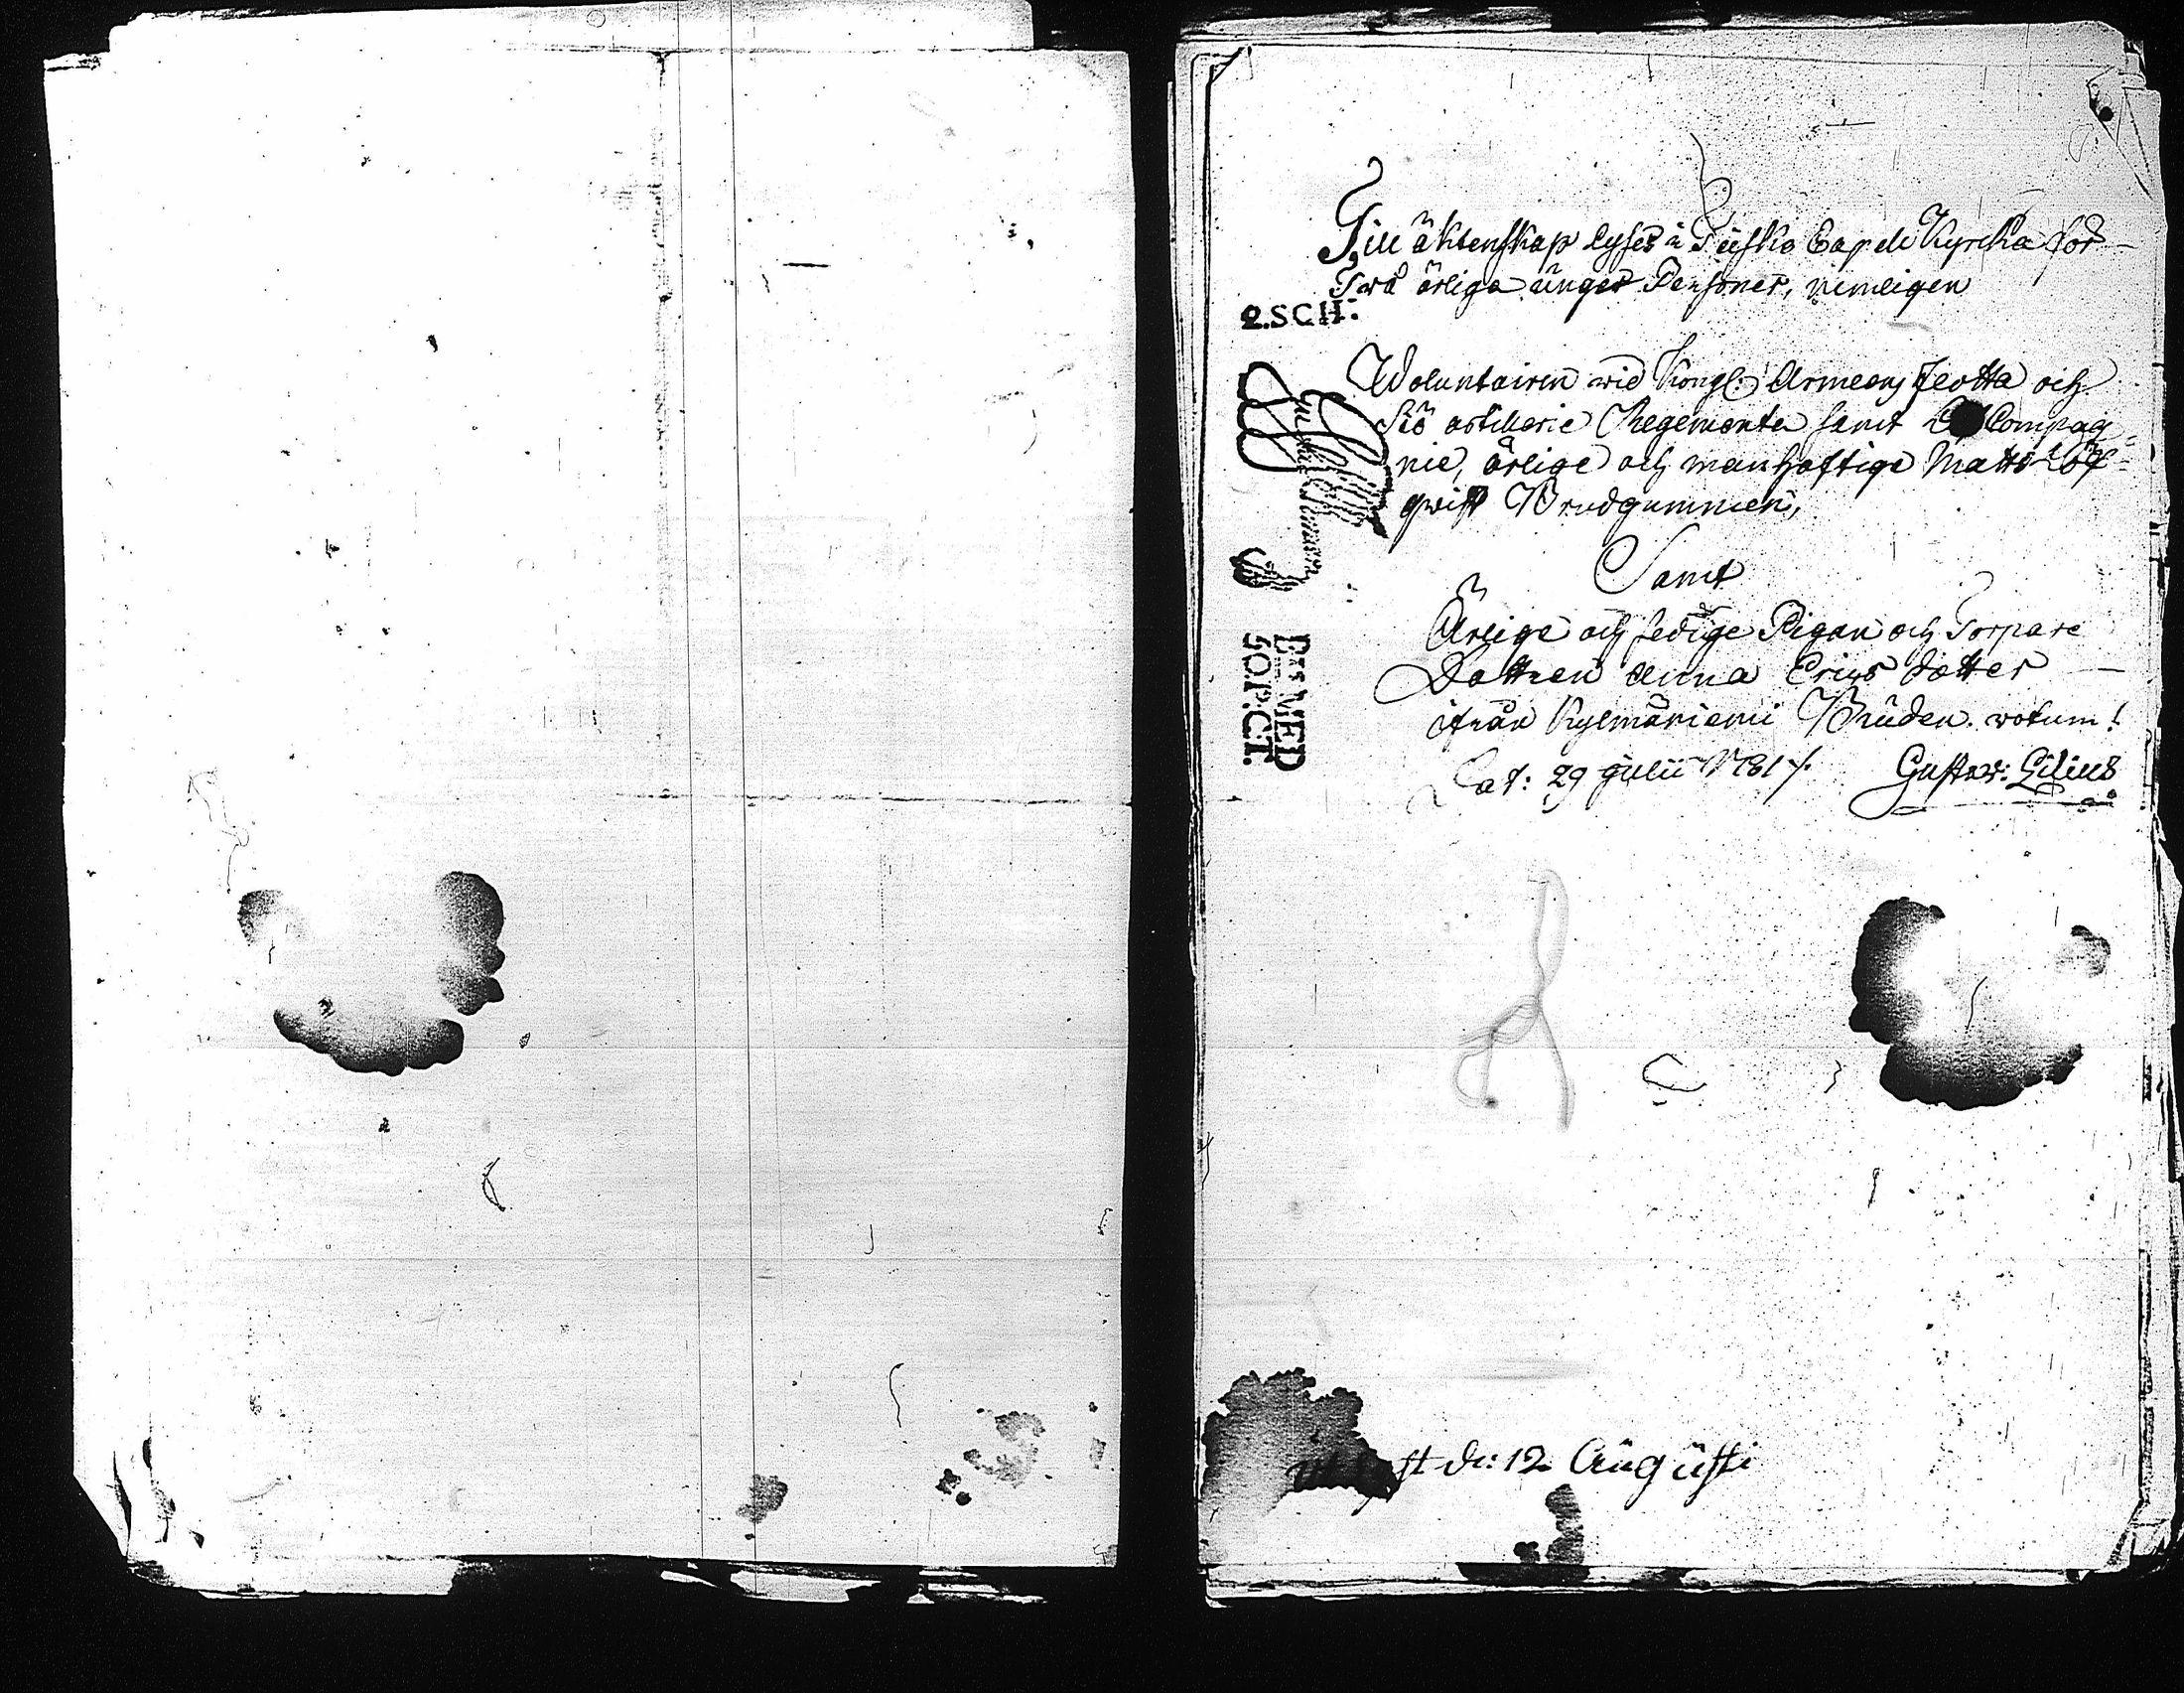 Till äktenskap lyses i Pusko Capele Kyrcka för
Twå ärliga unger Personer, nemligen
2.SCH:
Woluntairen wid Kongl: Armeens flotta och
Siö artillerie Regemente samt Compag
nie, ärlige och manhaftige Matts Löf
qwist Brudgummen,
Samt
Ärlige och sedige Pigan och Torpare
Dottren Anna Erics dotter
ifrån Kylmäniemi Bruden. wotum!
Dat: 29 Julii 1781 Gustav: Lilius
MED
50.P.CT.
d: 12 Augusti